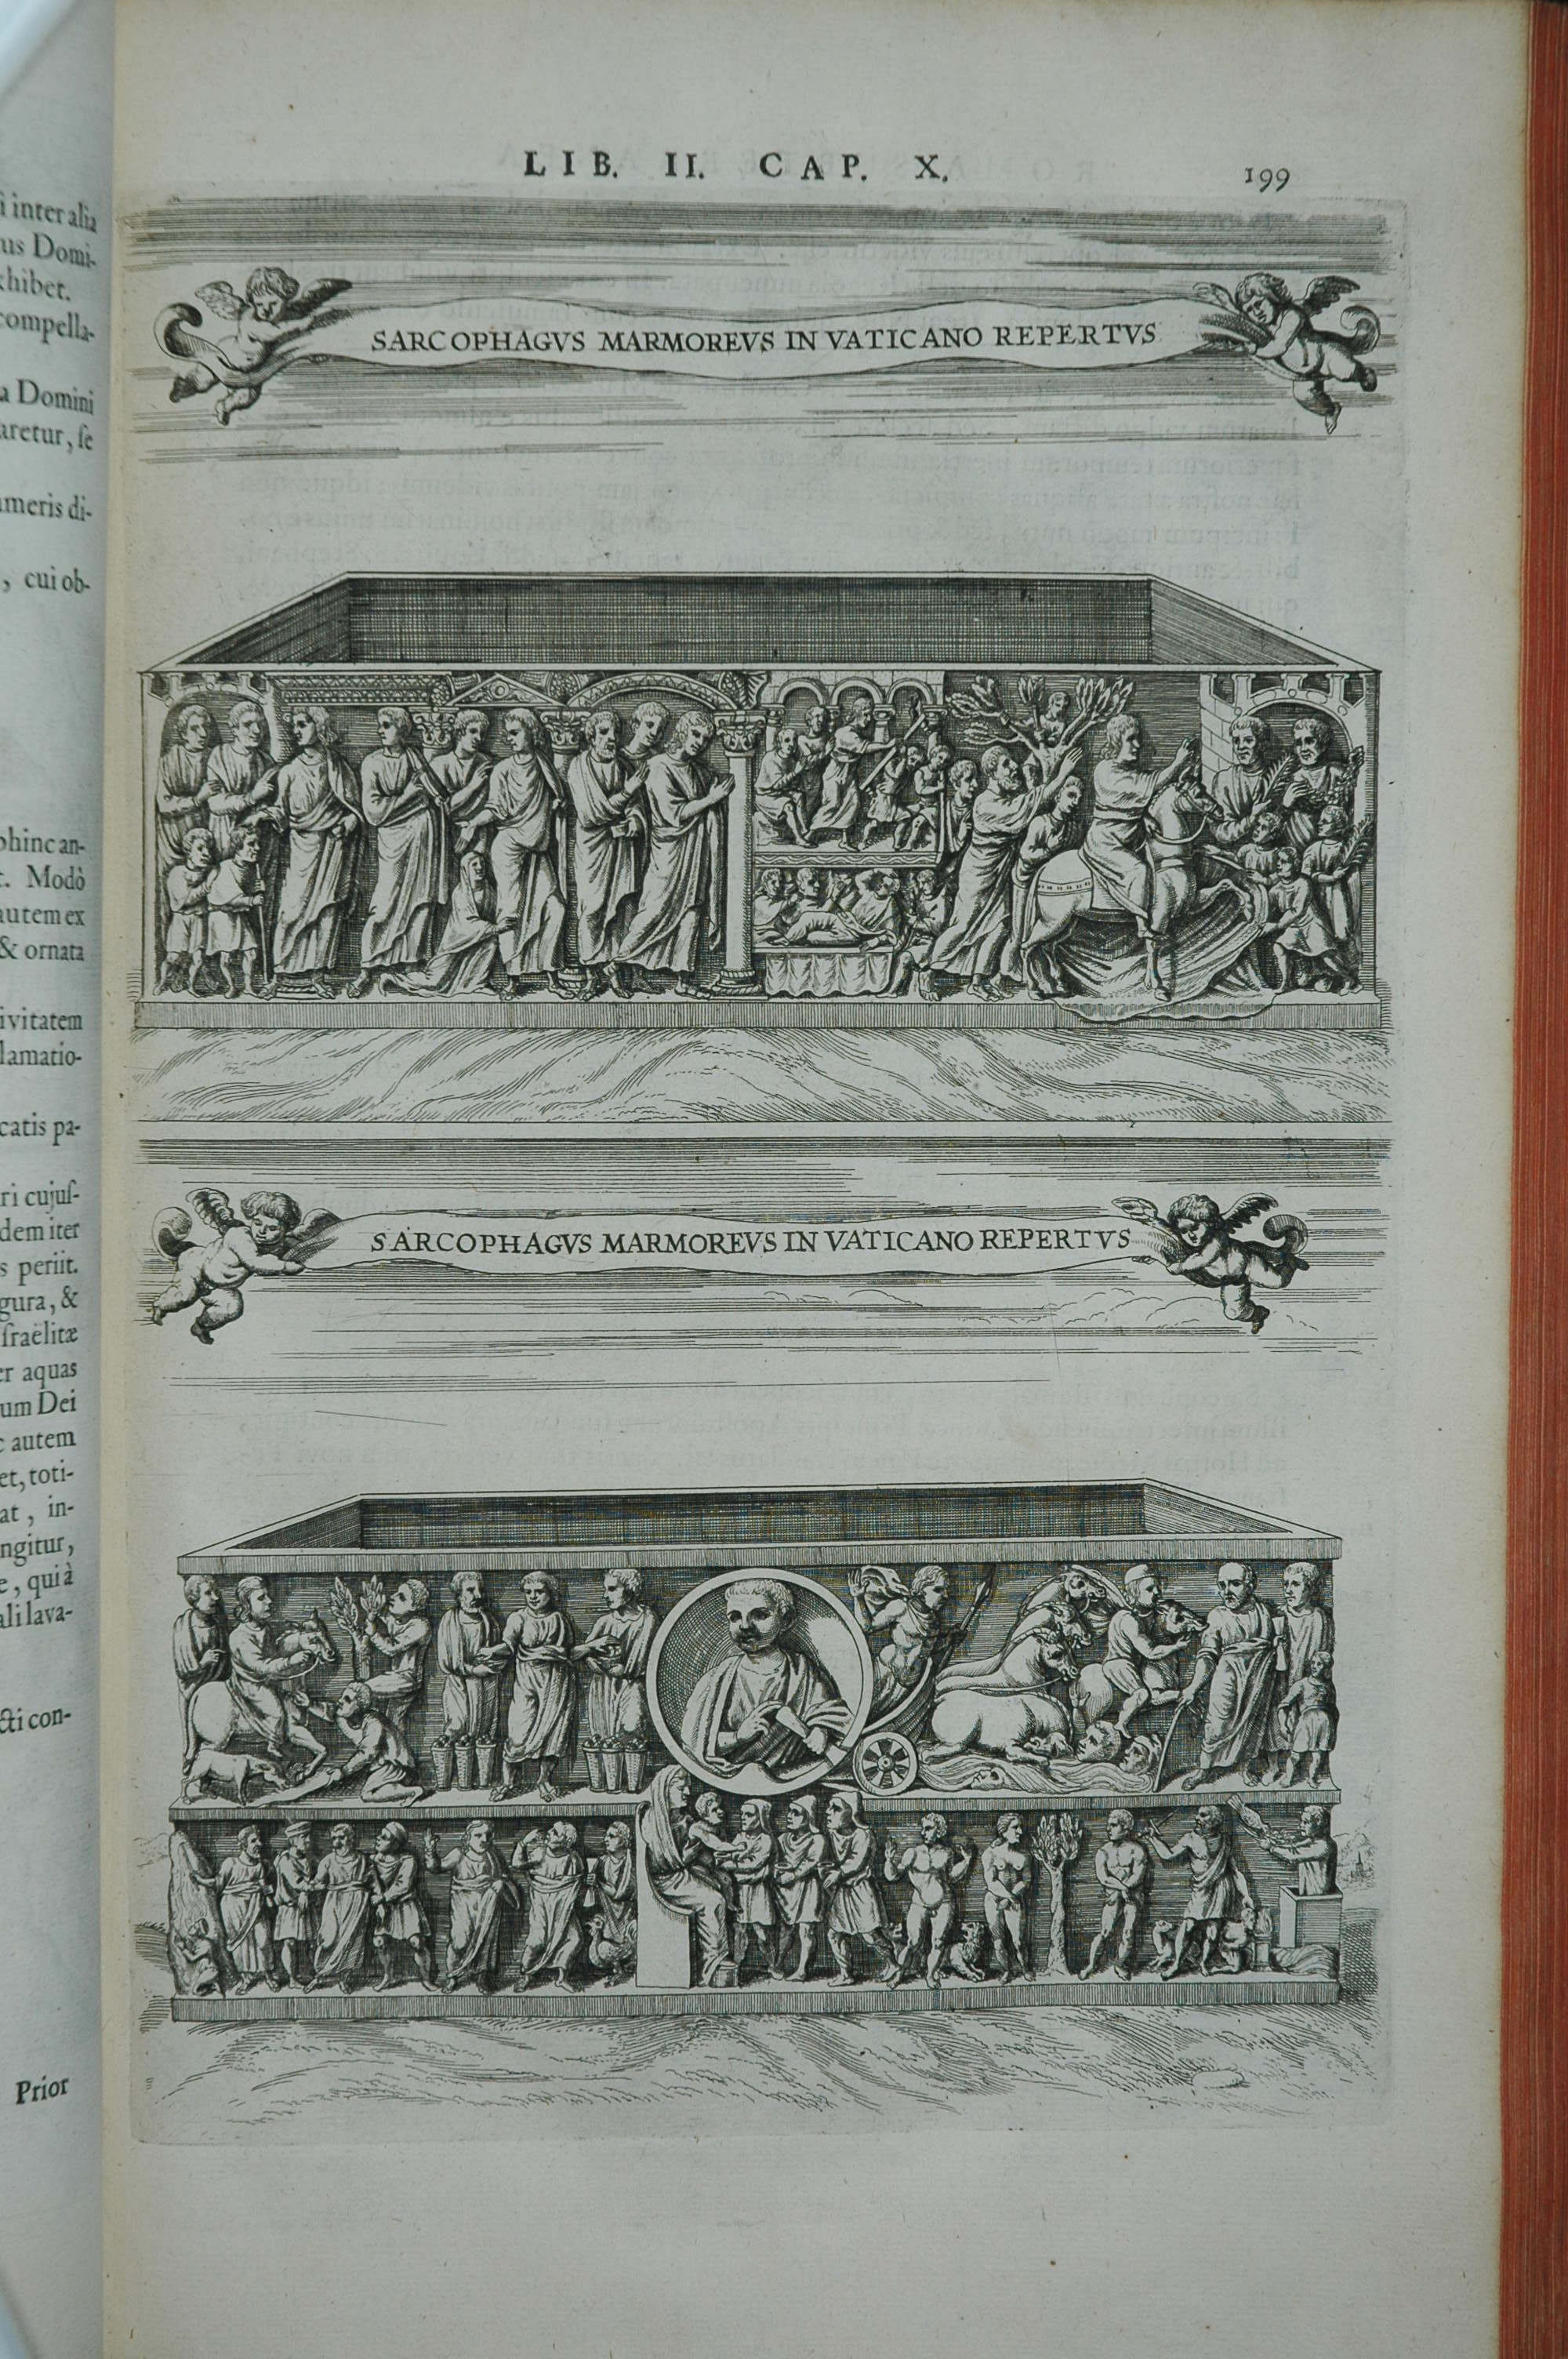 i inter alia
us Domi-
hibet.
compella-
a Domini
aretur, ſe
meris di-
, cui ob-
phinc an-
t. Modò
autem ex
& ornata
ivitatem
lamatio-
catis pa-
ri cujuſ-
dem iter
s periit.
gura, &
ſraëlitæ
er aquas
um Dei
c autem
et, toti-
at, in-
ngitur,
e, qui à
ali lava-
cti con-
Prior
LIB. II. CAP. X. 199
SARCOPHAGVS MARMOREVS IN VATICANO REPERTVS
SARCOPHAGVS MARMOREVS IN VATICANO REPERTVS